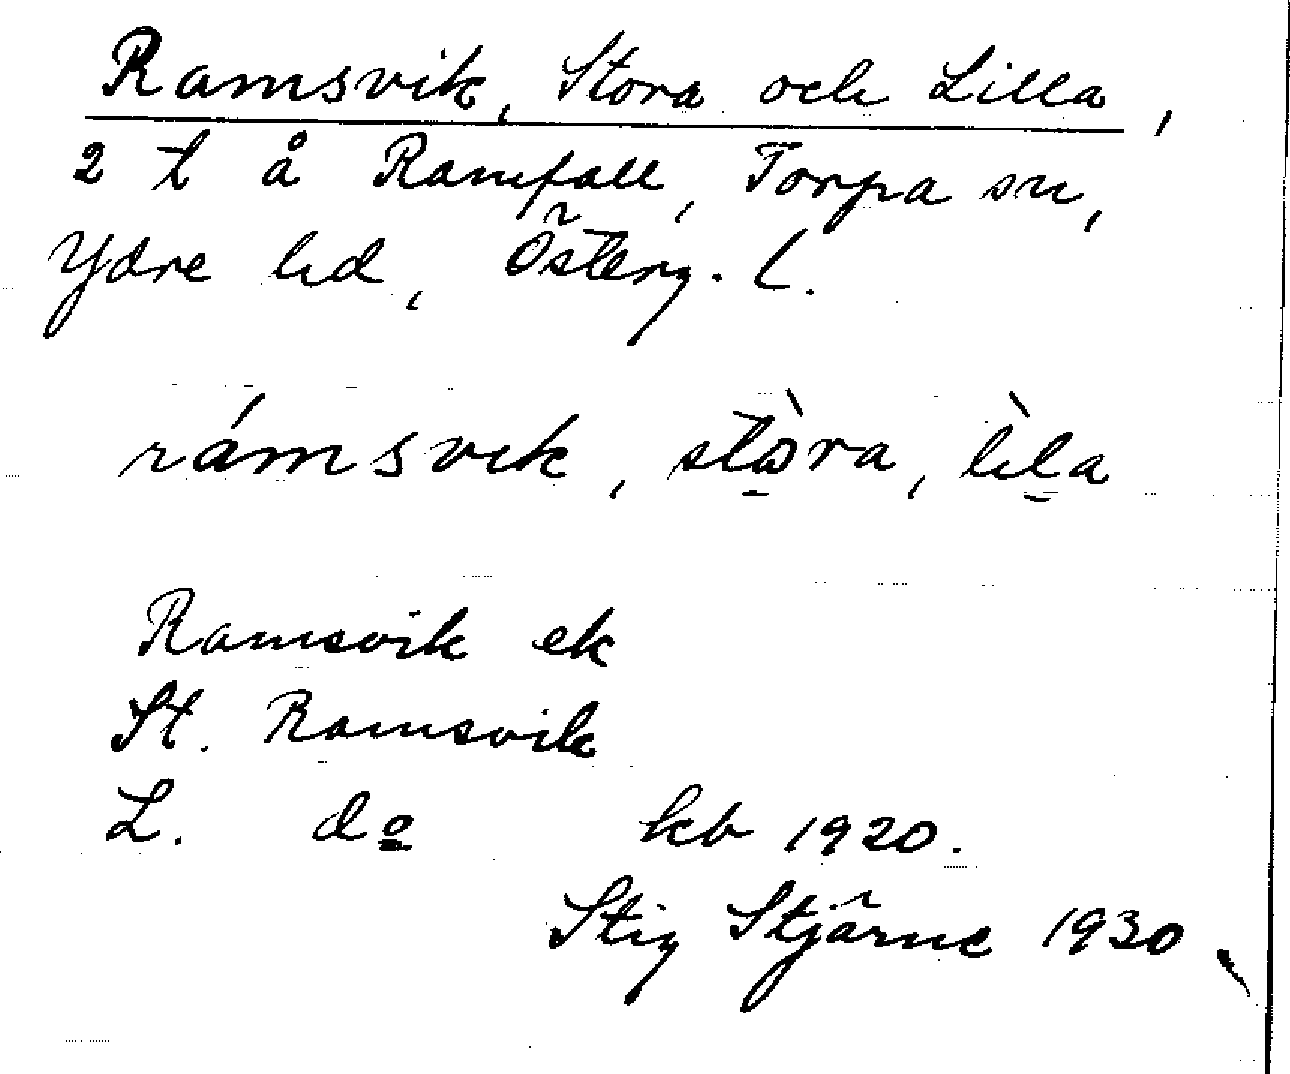 Ramsvik, Stora och Lilla,
2 t å Ramfall, Torpa sn,
Ydre hd, Österg. l.
rámsvik, stòra, lìla
Ramsvik ek
St. Ramsvik
L. do kb 1920.
Stig Stjärne 1930